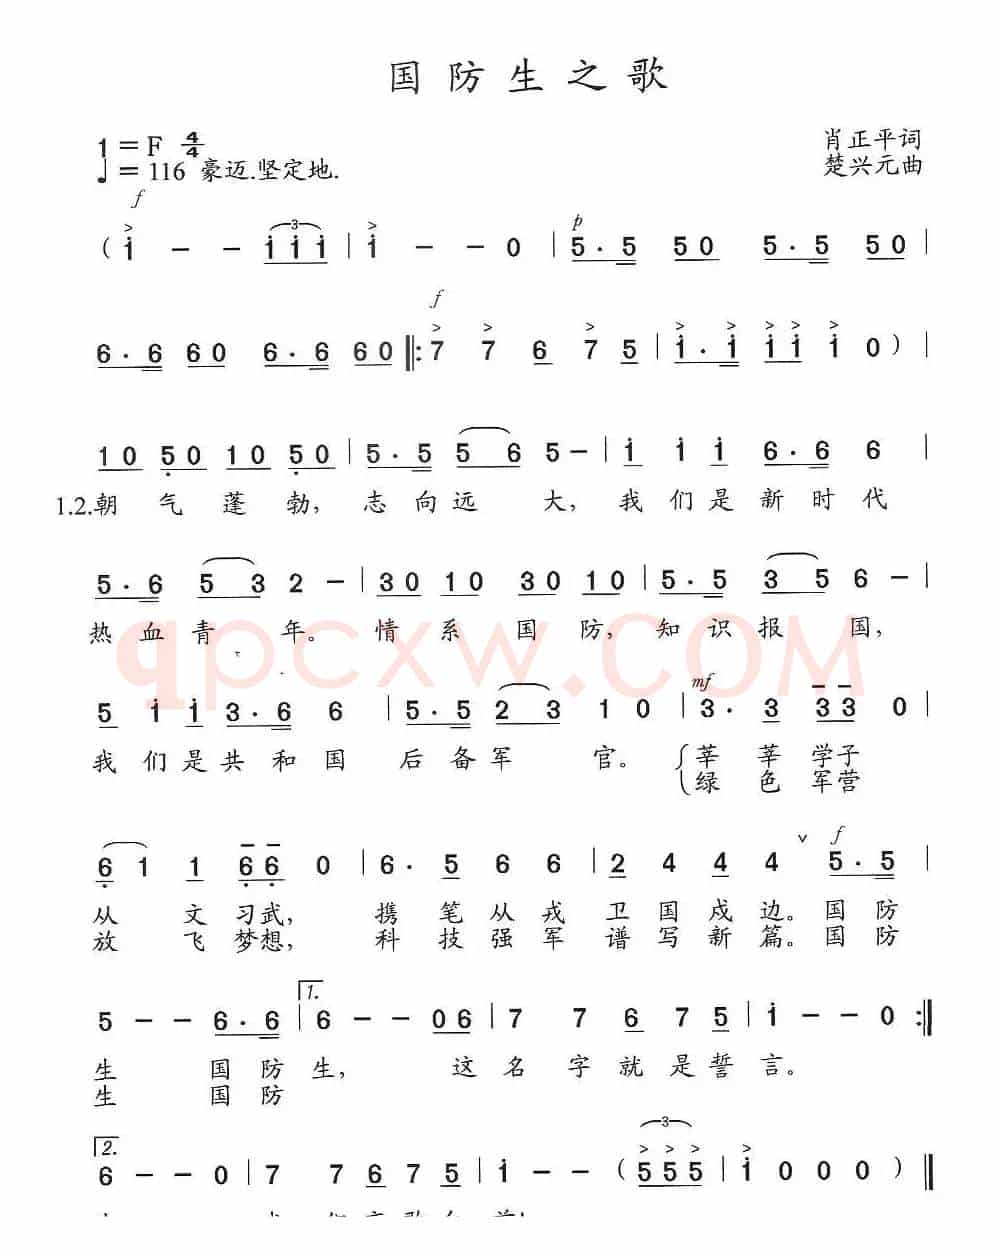 国防生之歌
1=F 4/4
肖正平词
♩=116 豪迈.坚定地.
楚兴元曲
f
3
p
( i - - i i i | i - - 0 | 5 · 5 5 0 5 · 5 5 0 |
f
6 · 6 6 0 6 · 6 6 0 ‖: 7 7 6 7 5 | i · i i i i 0 ) |
1 0 5 0 1 0 5 0 | 5 · 5 5 6 5 - | i i i 6 · 6 6 |
1.2.朝气蓬勃,志向远大,我们是新时代
5 · 6 5 3 2 - | 3 0 1 0 3 0 1 0 | 5 · 5 3 5 6 - |
热血青年。情系国防,知识报国,
qpcxw.COM
mf
5 i i 3 · 6 6 | 5 · 5 2 3 1 0 | 3 · 3 3 3 0 |
我们是共和国后备军官。莘莘学子
绿色军营
f
6 1 1 6 6 0 | 6 · 5 6 6 | 2 4 4 4 ˅ 5 · 5 |
从文习武,携笔从戎卫国戍边。国防
放飞梦想,科技强军谱写新篇。国防
1.
5 - - 6 · 6 | 6 - - 0 6 | 7 7 6 7 5 | i - - 0 :‖
生国防生,这名字就是誓言。
生国防
2.
3
6 - - 0 | 7 7 6 7 5 | i - - ( 5 5 5 | i 0 0 0 ) ‖